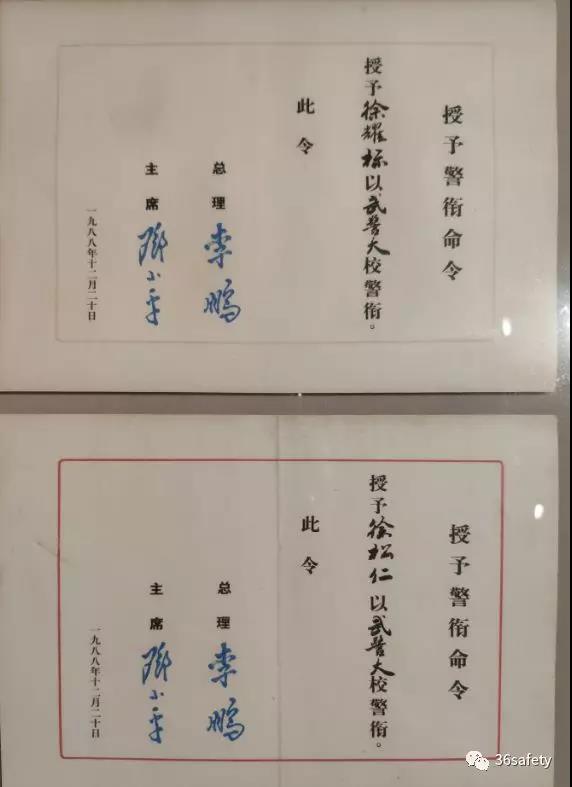 授予警衔命令
授予徐耀标以武警大校警衔。
此令
总理
李鹏
主席
邓小平
一九八八年十二月二十日
授予警衔命令
授予徐松仁以武警大校警衔。
此令
总理
李鹏
主席
邓小平
一九八八年十二月二十日
36safety